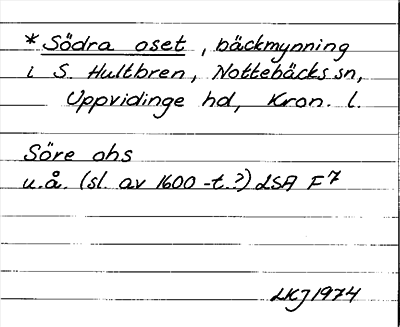 * Södra oset, bäckmynning
i S. Hultbren, Nottebäcks sn,
Uppvidinge hd, Kron. l.
Söre ohs
u.å. (sl. av 1600-t.?) LSA F7
LKJ 1974